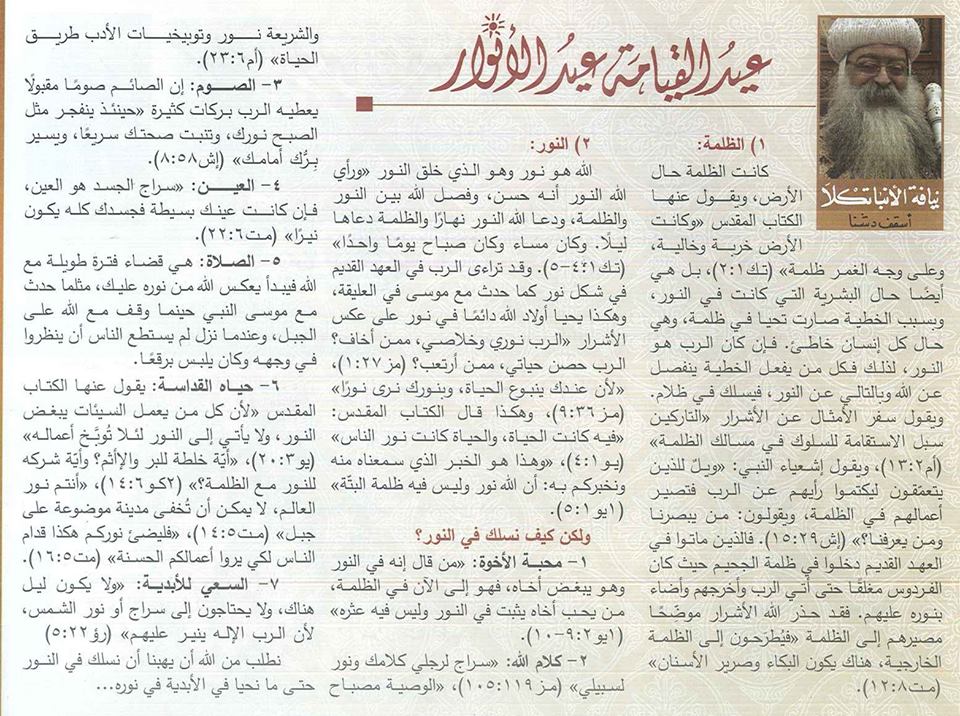 عيدُ القيامَة عيدُ الأنوار
نيافة الأنبا تكلا
أسقف دشنا
١) الظلمة:
كانت الظلمة حال
الأرض، ويقول عنها
الكتاب المقدس «وكانت
الأرض خربة وخالية،
وعلى وجه الغمر ظلمة» (تك٢:١)، بل هي
أيضًا حال البشرية التي كانت في النور،
وبسبب الخطية صارت تحيا في ظلمة، وهي
حال كل إنسان خاطئ. فإن كان الرب هو
النور، لذلك فكل من يفعل الخطية ينفصل
عن الله وبالتالي عن النور، فيسلك في ظلام.
ويقول سفر الأمثال عن الأشرار «التاركين
سبل الاستقامة للسلوك في مسالك الظلمة»
(أم١٣:٢)، ويقول إشعياء النبي: «ويلٌ للذين
يتعمّقون ليكتموا رأيهم عن الرب فتصير
أعمالهم في الظلمة، ويقولون: من يبصرنا
ومن يعرفنا؟» (إش١٥:٢٩). فالذين ماتوا في
العهد القديم دخلوا في ظلمة الجحيم حيث كان
الفردوس مغلقًا حتى أتي الرب وأخرجهم وأضاء
بنوره عليهم. فقد حذر الله الأشرار موضحًا
مصيرهم إلى الظلمة «فيُطرَحون إلى الظلمة
الخارجية، هناك يكون البكاء وصرير الأسنان»
(مت١٢:٨).
٢) النور:
الله هو نور وهو الذي خلق النور «ورأي
الله النور أنه حسن، وفصل الله بين النور
والظلمة، ودعا الله النور نهارًا والظلمة دعاها
ليلًا. وكان مساء وكان صباح يومًا واحدًا»
(تك٤:١-٥). وقد تراءى الرب في العهد القديم
في شكل نور كما حدث مع موسى في العليقة،
وهكذا يحيا أولاد الله دائمًا في نور على عكس
الأشرار «الرب نوري وخلاصي، ممن أخاف؟
الرب حصن حياتي، ممن أرتعب؟ (مز ١:٢٧)،
«لأن عندك ينبوع الحياة، وبنورك نرى نورًا»
(مز ٩:٣٦)، وهكذا قال الكتاب المقدس:
«فيه كانت الحياة، والحياة كانت نور الناس»
(يو٤:١)، «وهذا هو الخبر الذي سمعناه منه
ونخبركم به: أن الله نور وليس فيه ظلمة البتّة»
(١يو٥:١).
ولكن كيف نسلك في النور؟
١- محبة الأخوة: «من قال إنه في النور
وهو يبغض أخاه، فهو إلى الآن في الظلمة،
من يحب أخاه يثبت في النور وليس فيه عثره»
(١يو٩:٢-١٠).
٢- كلام الله: «سراج لرجلي كلامك ونور
لسبيلي» (مز ١٠٥:١١٩)، «الوصية مصباح
والشريعة نور وتوبيخيات الأدب طريق
الحياة» (أم٢٣:٦).
٣- الصوم: إن الصائم صومًا مقبولًا
يعطيه الرب بركات كثيرة «حينئذ ينفجر مثل
الصبح نورك، وتنبت صحتك سريعًا، ويسير
برُّك أمامك» (إش٨:٥٨).
٤- العين: «سراج الجسد هو العين،
فإن كانت عينك بسيطة فجسدك كله يكون
نيرًا» (مت٢٢:٦).
٥- الصلاة: هي قضاء فترة طويلة مع
الله فيبدأ يعكس الله من نوره عليك، مثلما حدث
مع موسى النبي حينما وقف مع الله على
الجبل، وعندما نزل لم يستطع الناس أن ينظروا
في وجهه وكان يلبس برقعًا.
٦- حياه القداسة: يقول عنها الكتاب
المقدس «لأن كل من يعمل السيئات يبغض
النور، ولا يأتي إلى النور لئلا تُوبَّخ أعماله»
(يو٢٠:٣)، «أيّة خلطة للبر والإأثم؟ وأيّة شركه
للنور مع الظلمة؟» (٢كو١٤:٦)، «أنتم نور
العالم، لا يمكن أن تُخفى مدينة موضوعة على
جبل» (مت١٤:٥)، «فليضئ نوركم هكذا قدام
الناس لكي يروا أعمالكم الحسنة» (مت١٦:٥).
٧- السعي للأبدية: «ولا يكون ليل
هناك، ولا يحتاجون إلى سراج أو نور الشمس،
لأن الرب الإله ينير عليهم» (رؤ٥:٢٢)
نطلب من الله أن يهبنا أن نسلك في النور
حتى ما نحيا في الأبدية في نوره...